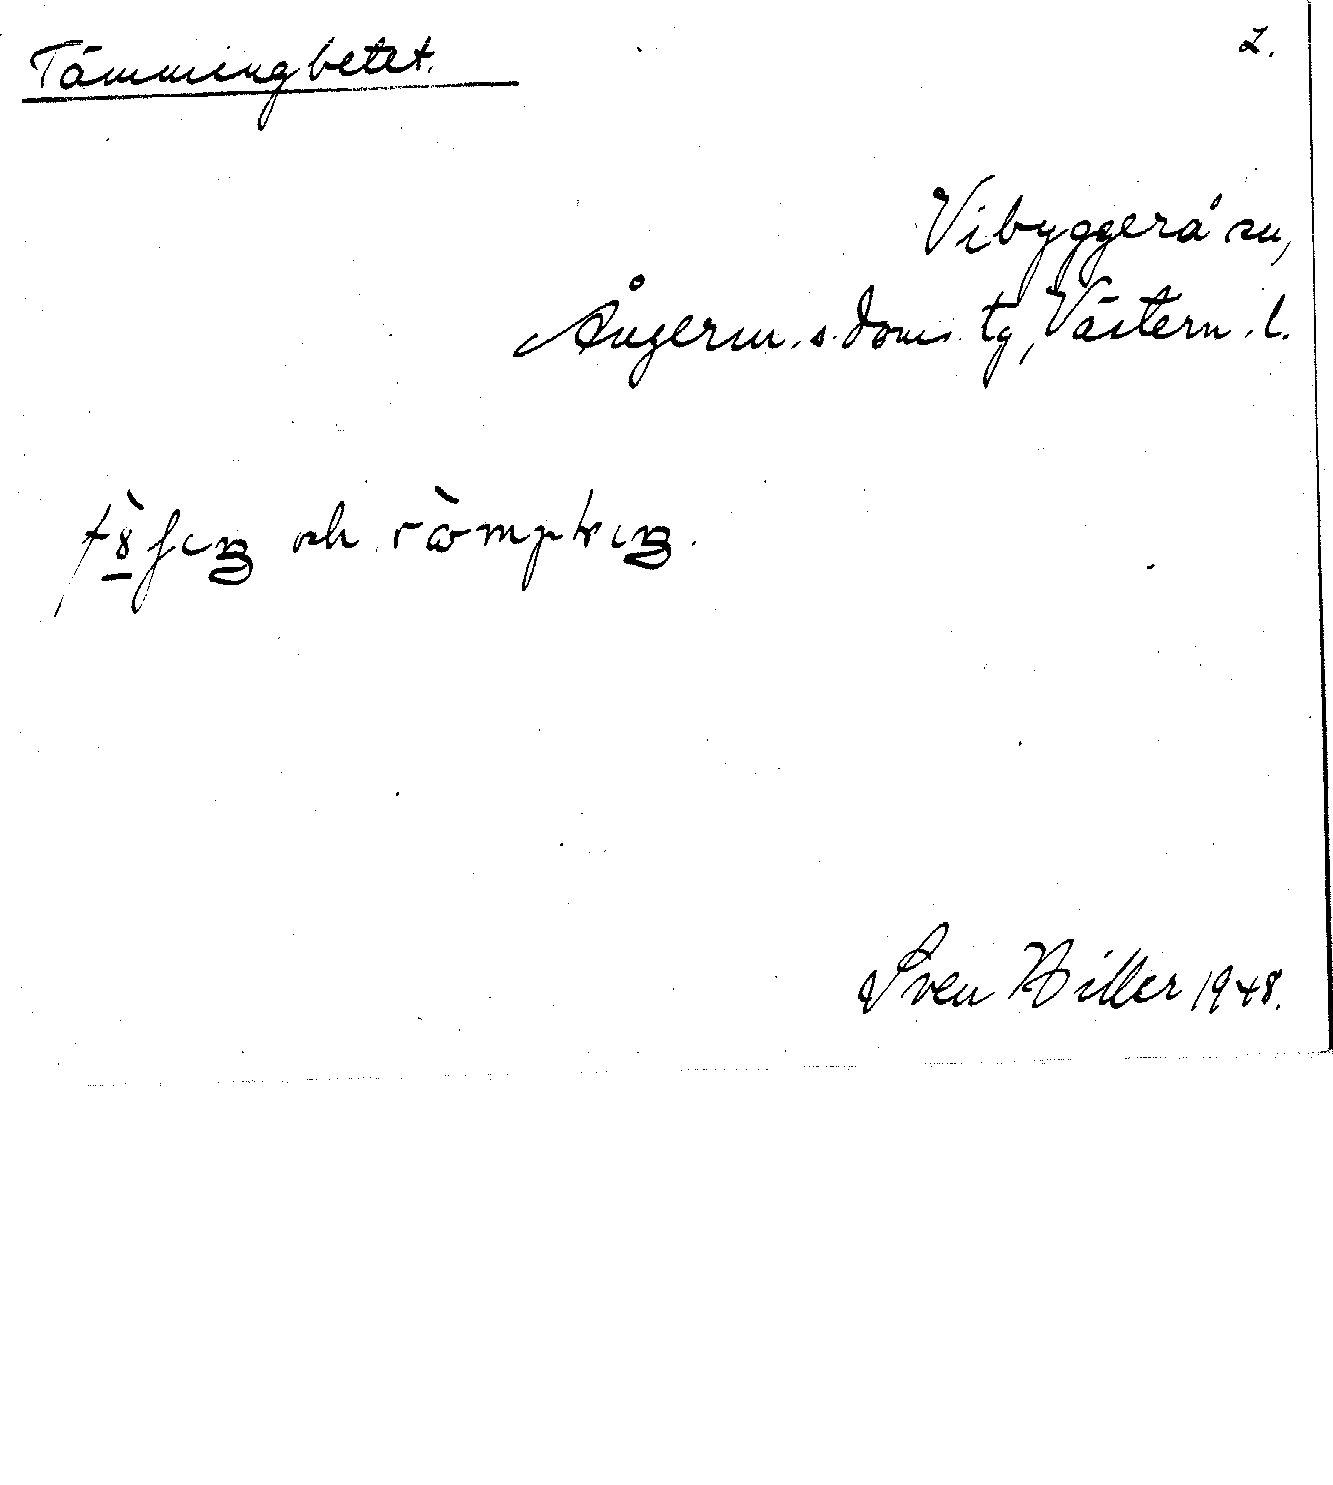 Tämmingbetet. 2.
Vibyggerå sn,
Ångerm. s. doms. tg, Västern. l.
och
Sven Hiller 1948.